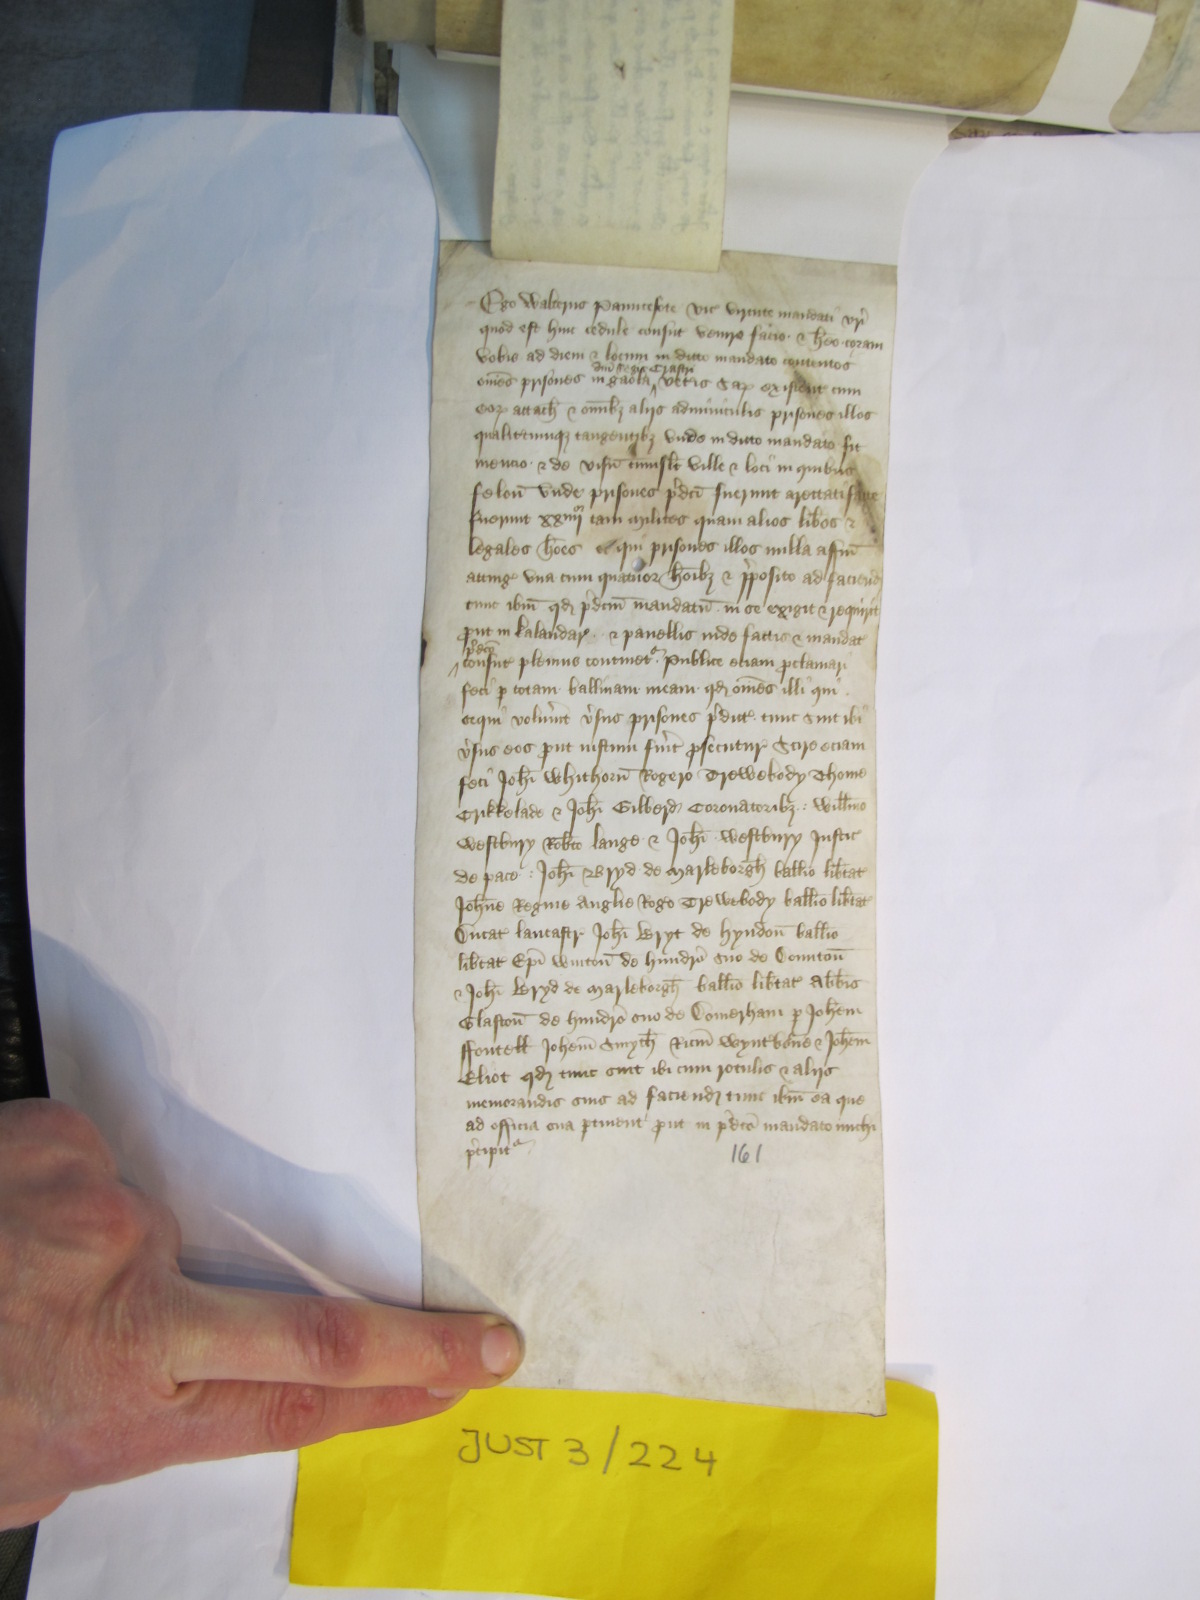 Ego Walterus Pauncefote vic virtute mandati vr̄i
quod est huic cedule consut̄ venire facio & h̄eo coram
vobis ad diem & locum in dicto mandato contentos
om̄es prisones in gaola dn̄i Regis Castri vet̄is Saꝝ existent̄ cum
eoꝝ attach̄ & om̄ibꝫ alijs adminiculis prisones illos
qualitercumqꝫ tangentibꝫ unde in dicto mandato fit
mencio & de visū cuiuslt̄ ville & loci in quibus
felon̄ unde prisones p̄dc̄i fuerunt arettati
fuerunt xxiiij tam milites quam alios lib̄os &
legales h̄oes qui prisones illos nulla affin̄
attinḡ una cum quatuor h̄oibꝫ & p̄posito ad faciend̄
tunc ib̄m qd̄ p̄dc̄m mandatū in se exigit & requirit
ꝓut in kalendaꝝ & panellis inde factis & mandat
p̄dc̄o consut̄ plenius continet̄ᵃ Publice eciam ꝓclamari
feci ꝑ totam ballivam meam qd̄ om̄es illi qui
sequi volūint v̄sus prisones p̄dict̄ tunc sint ibi
v̄sus eos ꝓut iustum fūit ꝓsecutur̄ Scire eciam
feci Joh̄i Whithorn̄ Rogero Trewebody Thome
Crikkelade & Joh̄i Gilberd Coronatoribꝫ Will̄mo
Westbury Rob̄to Lange & Joh̄i Westbury Justic̄
de pace Joh̄i Bryd de Marleborgh̄ ball̄io lib̄tat̄
Joh̄ne Regine Anglie Roḡo Trewebody ball̄io lib̄tat̄
Ducat̄ Lancastr̄ Joh̄i Bryt de Hyndon̄ ball̄io
lib̄tat̄ Ep̄i Winton̄ de hundr̄o suo de Dounton̄
& Joh̄i Bryd de Marleborgh̄ ball̄io lib̄tat̄ Abb̄is
Glaston̄ de hundr̄o suo de Domerham ꝑ Joh̄em
ffontell Joh̄em Smyth̄ Ric̄m Wyntbone & Joh̄em
Eliot qd̄ tunc sint ibi cum rotulis & alijs
memorandis suis ad faciend̄ tunc ib̄m ea que
ad officia sua ꝑtinent ꝓut in p̄dc̄o mandato michi
p̄cipitᵃ
161
JUST 3/224